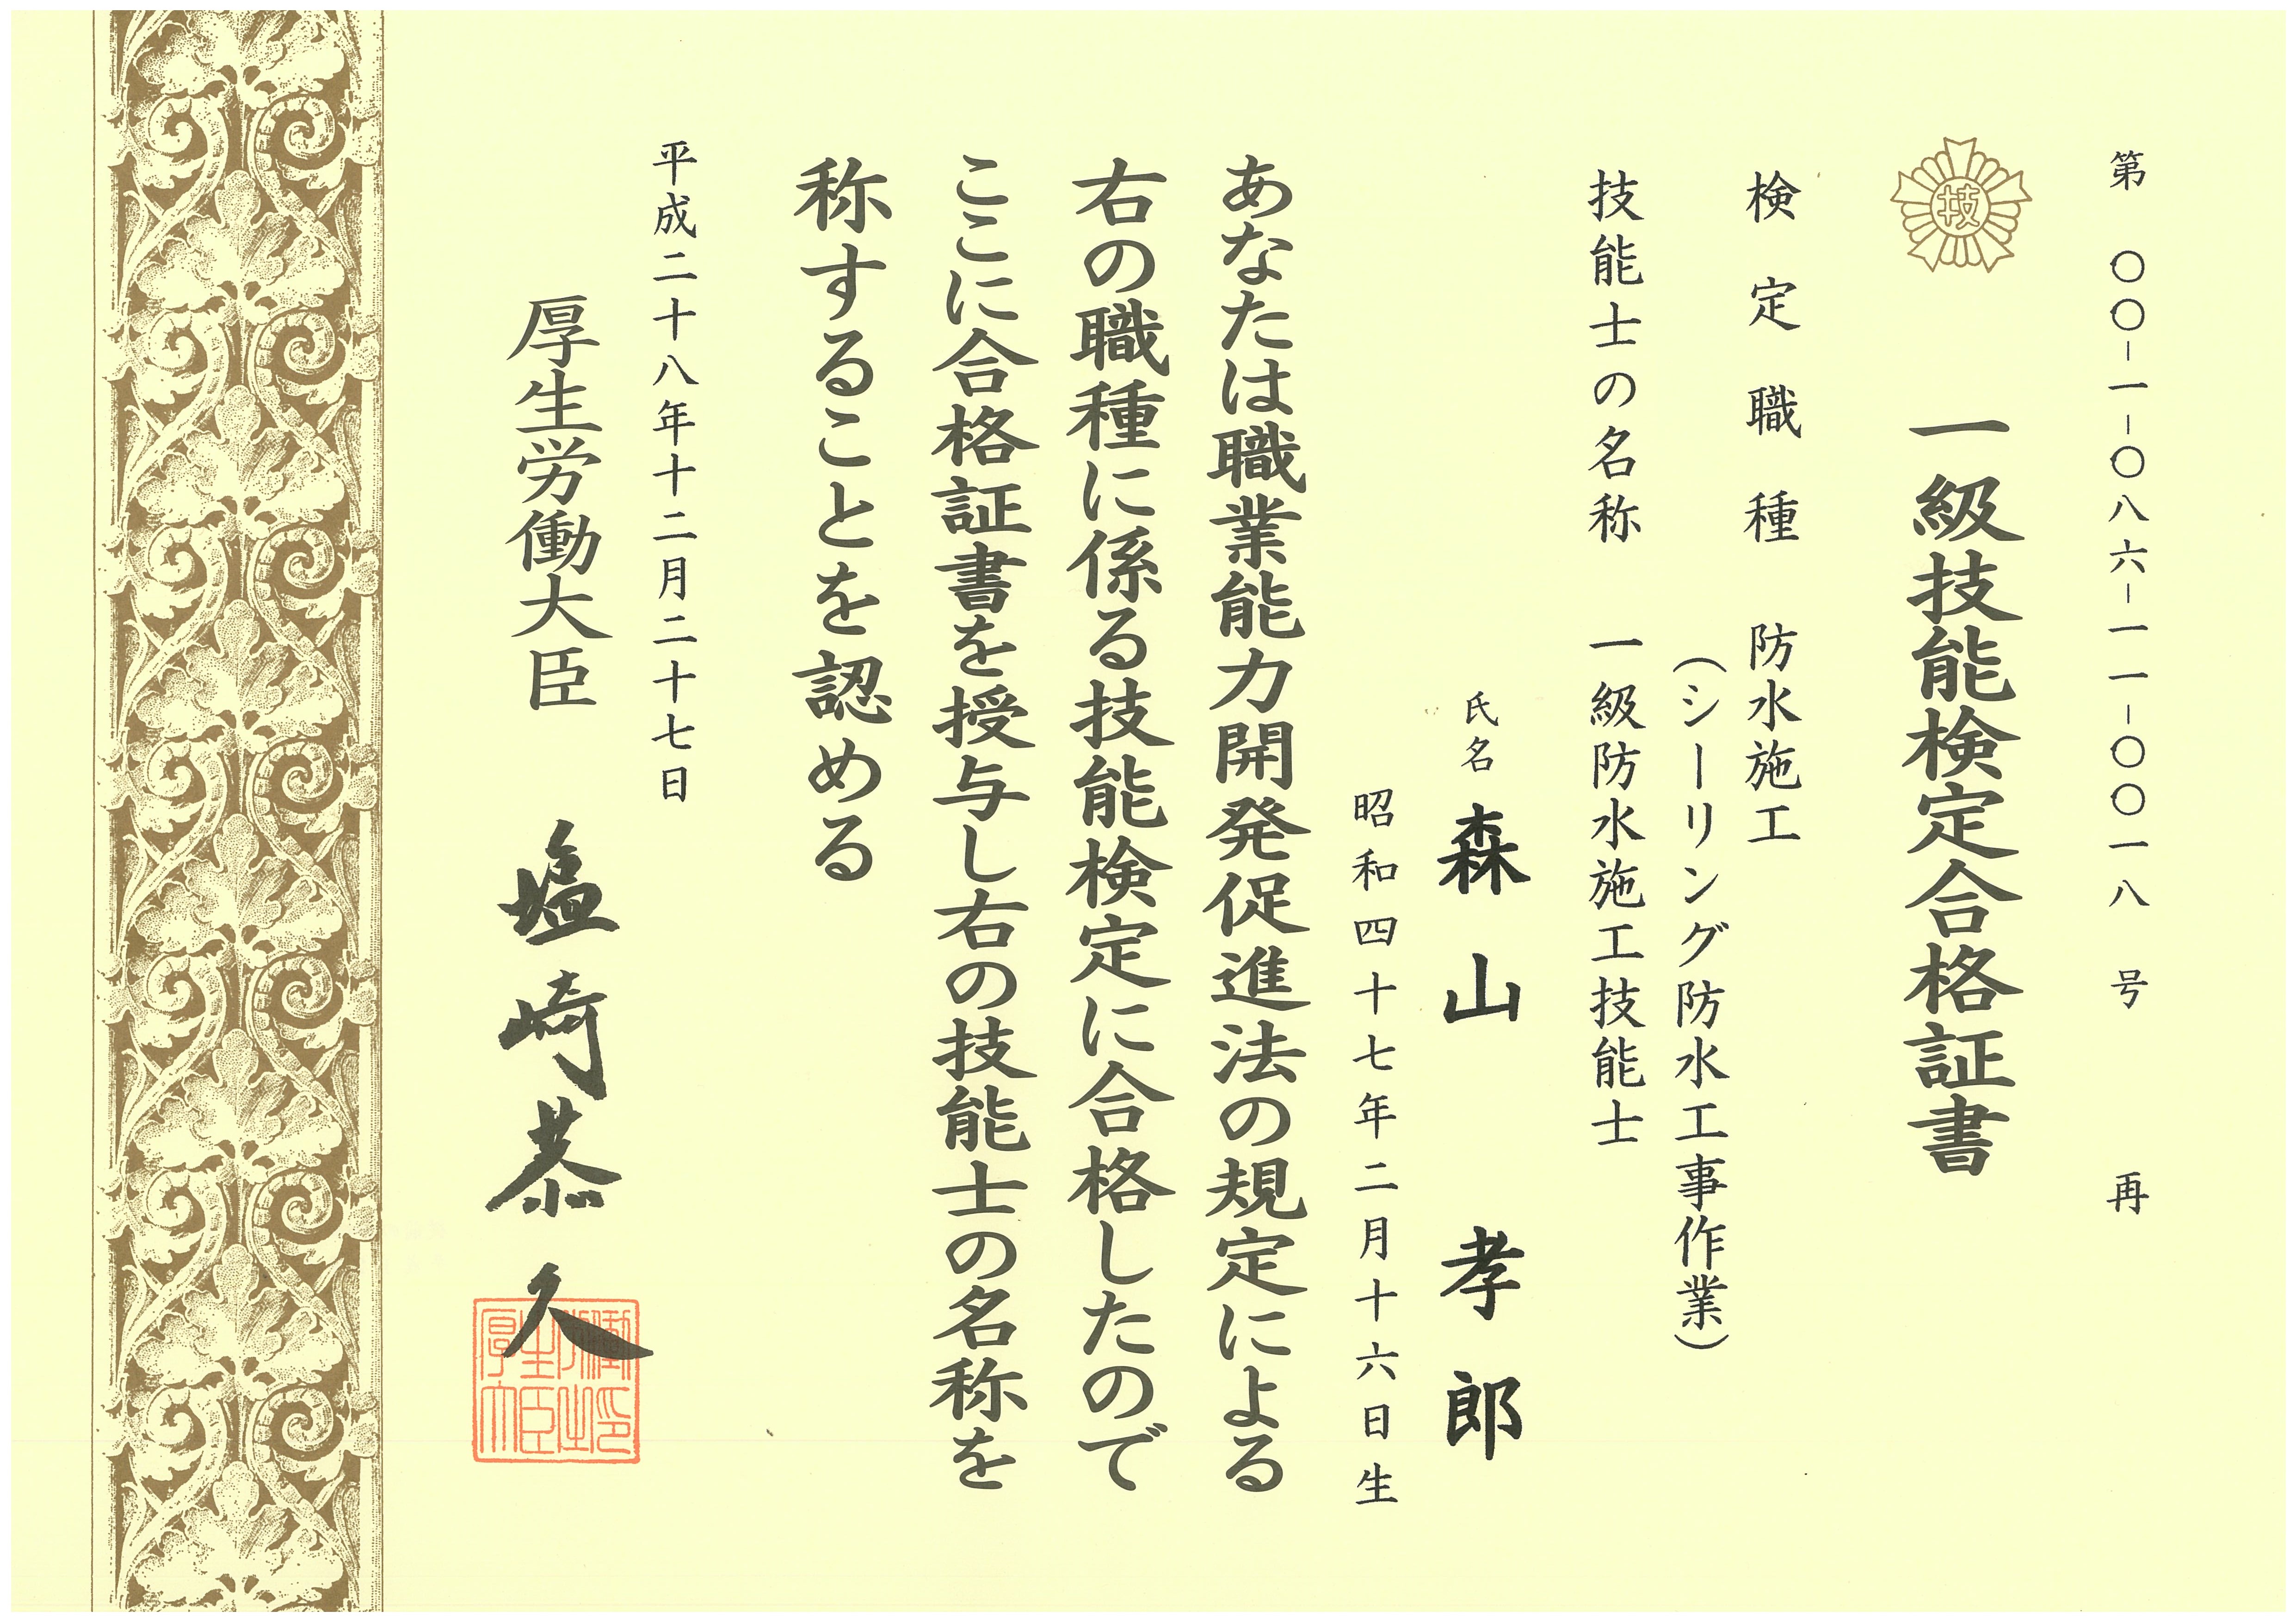 第 〇〇-一-〇八六-一一-〇〇一八 号 再
技
一級技能検定合格証書
検定職種 防水施工
(シーリング防水工事作業)
技能士の名称 一級防水施工技能士
氏名 森山 孝郎
昭和四十七年二月十六日生
あなたは職業能力開発促進法の規定による
右の職種に係る技能検定に合格したので
ここに合格証書を授与し右の技能士の名称を
称することを認める
平成二十八年十二月二十七日
厚生労働大臣 塩崎恭久
厚生労働大臣之印